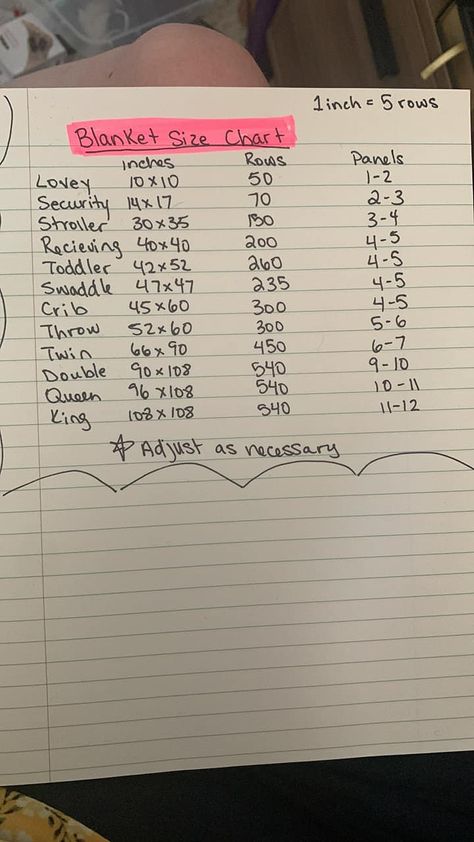 1 inch = 5 rows
Blanket Size Chart
inches Rows Panels
Lovey 10 x 10 50 1-2
Security 14 x 17 70 2-3
Stroller 30 x 35 150 3-4
Recieving 40 x 40 200 4-5
Toddler 42 x 52 260 4-5
Swaddle 47 x 47 235 4-5
Crib 45 x 60 300 4-5
Throw 52 x 60 300 5-6
Twin 66 x 90 450 6-7
Double 90 x 108 540 9-10
Queen 96 x 108 540 10-11
King 108 x 108 540 11-12
☆ Adjust as necessary